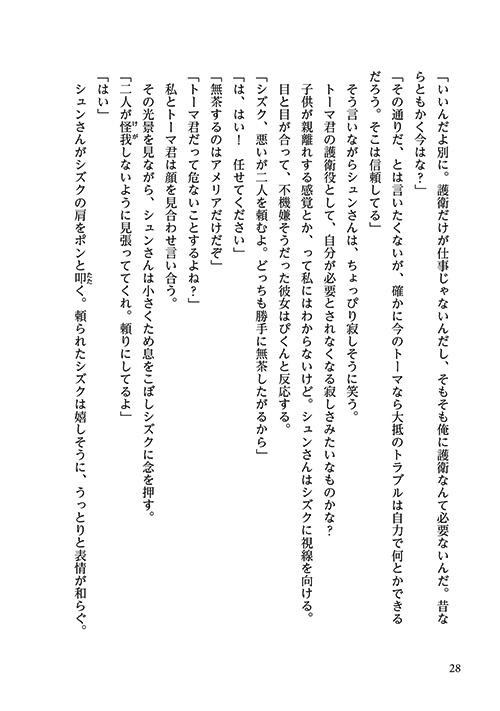 「いいんだよ別に。護衛だけが仕事じゃないんだし、そもそも俺に護衛なんて必要ないんだ。昔な
らともかく今はな？」
「その通りだ、とは言いたくないが、確かに今のトーマなら大抵のトラブルは自力で何とかできる
だろう。そこは信頼してる」
そう言いながらシュンさんは、ちょっぴり寂しそうに笑う。
トーマ君の護衛役として、自分が必要とされなくなる寂しさみたいなものかな？
子供が親離れする感覚とか、って私にはわからないけど。シュンさんはシズクに視線を向ける。
目と目が合って、不機嫌そうだった彼女はぴくんと反応する。
「シズク、悪いが二人を頼むよ。どっちも勝手に無茶したがるから」
「は、はい！　任せてください」
「無茶するのはアメリアだけだぞ」
「トーマ君だって危ないことするよね？」
私とトーマ君は顔を見合わせ言い合う。
その光景を見ながら、シュンさんは小さくため息をこぼしシズクに念を押す。
「二人が怪我しないように見張っててくれ。頼りにしてるよ」
けが
「はい」
シュンさんがシズクの肩をポンと叩く。頼られたシズクは嬉しそうに、うっとりと表情が和らぐ。
たた
28